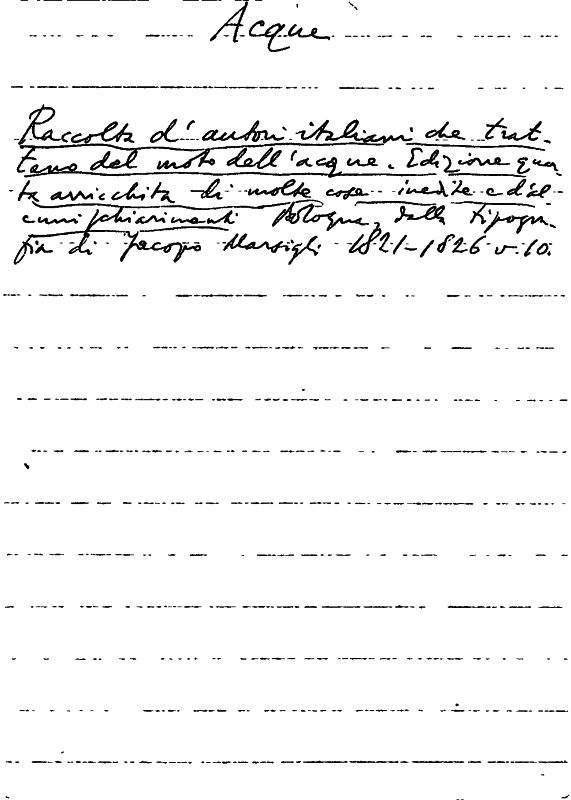 Acque
Raccolta d'autori italiani che trat-
tano del moto dell'acque. Edizione quar
ta arricchita di molte cose inedite e d'al-
cuni schiarimenti Bologna, dalla tipogra-
fia di Jacopo Marsigli 1821-1826 v. 10.